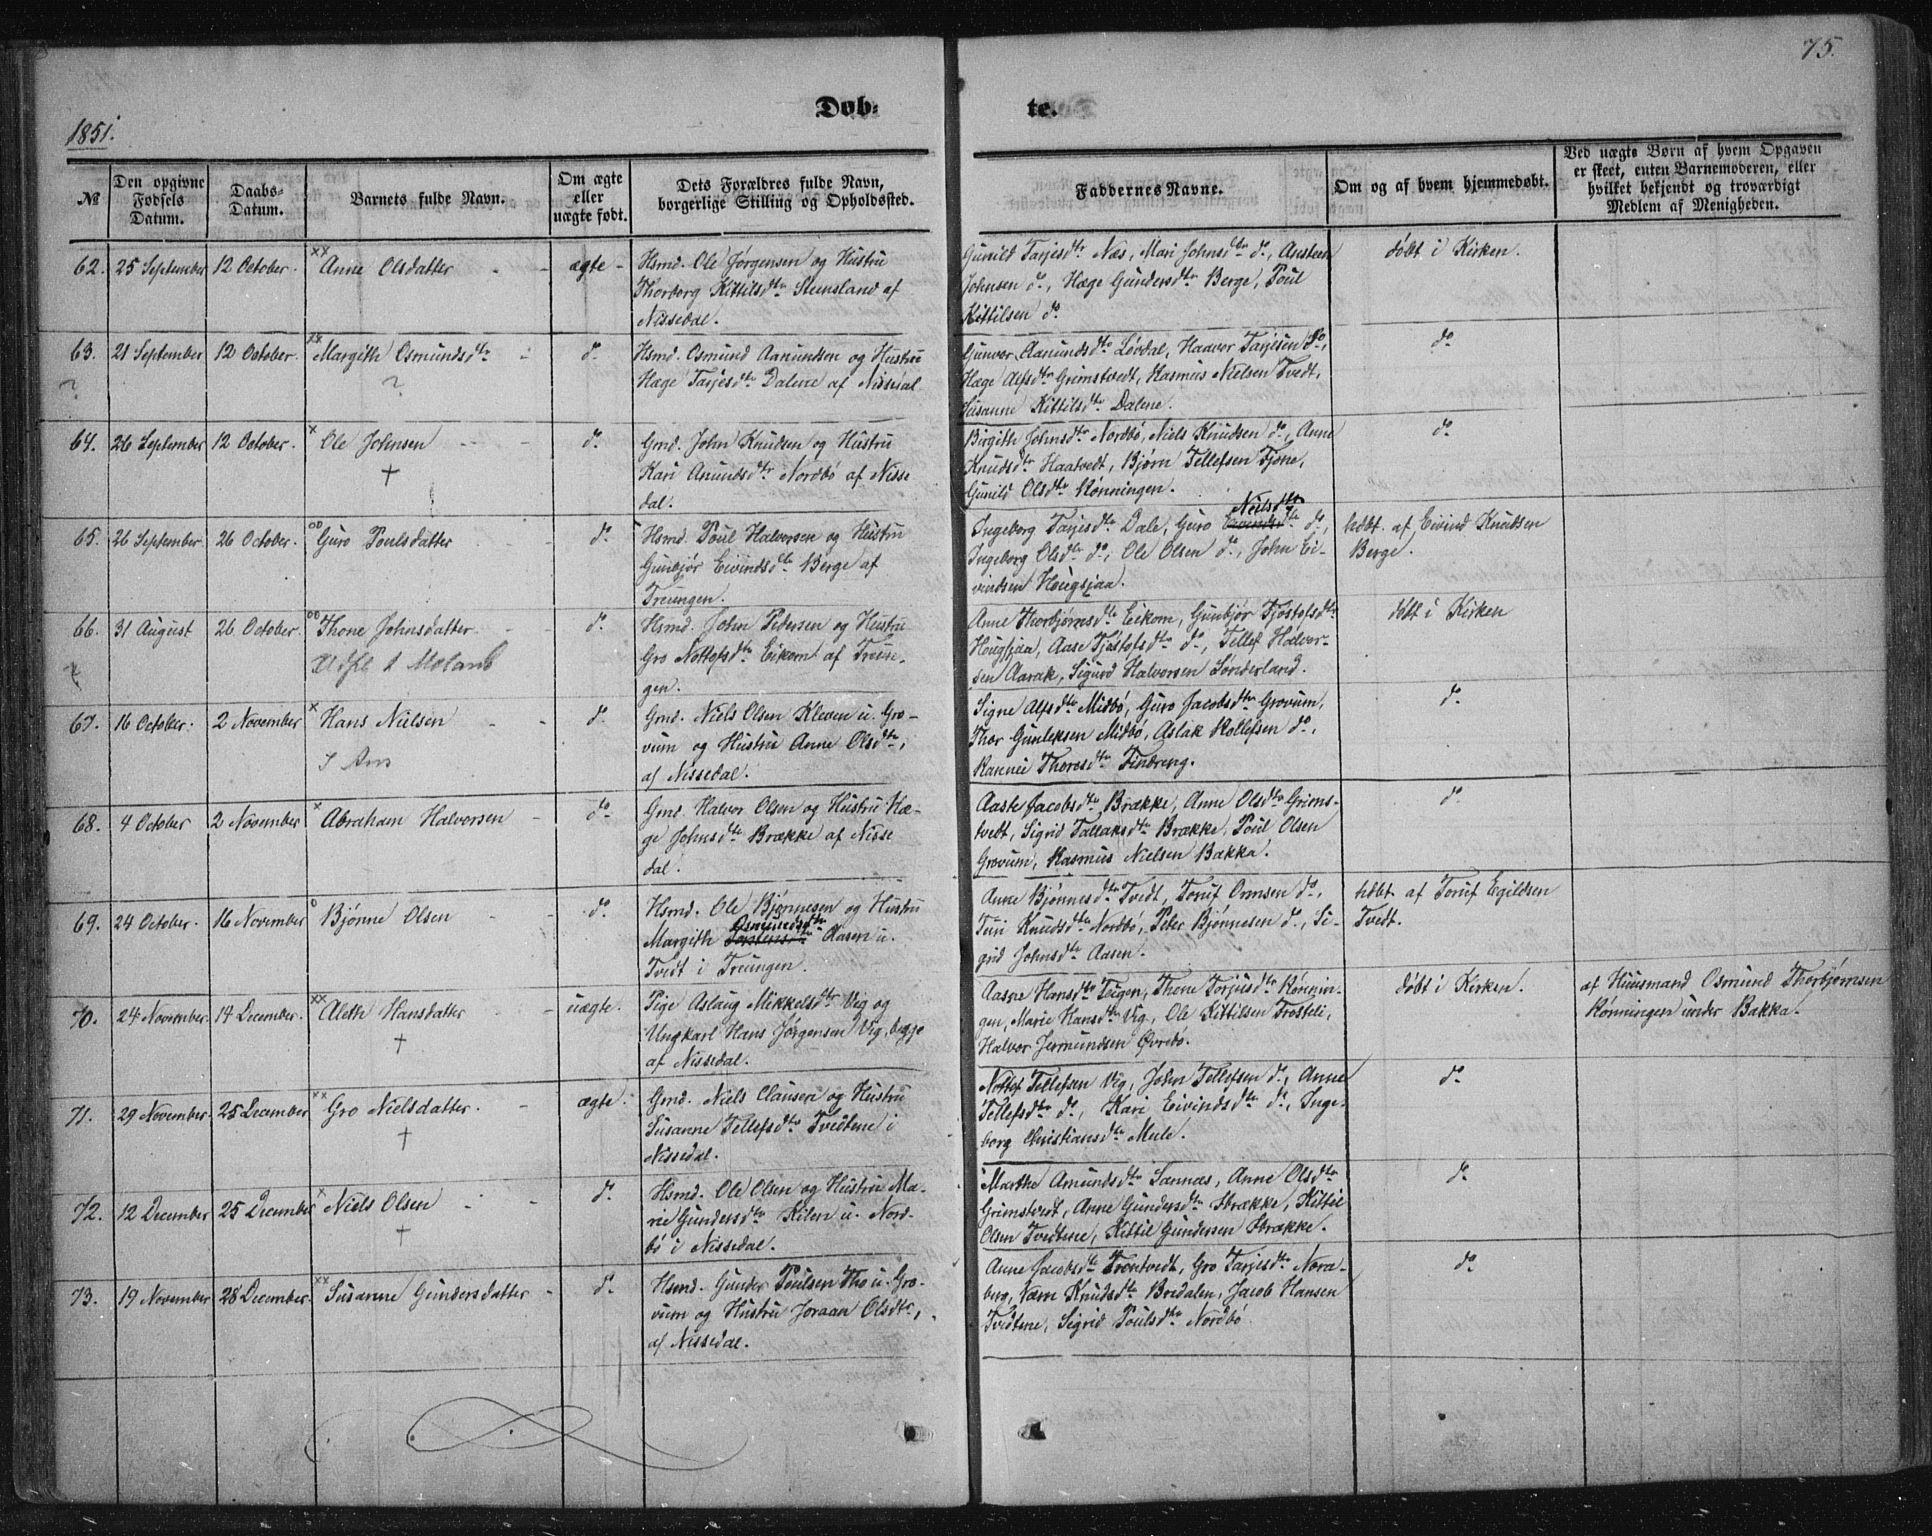 75.
Døb-
te.
1851.
№
Den opgivne
Fødsels
Datum.
Daabs-
Datum.
Barnets fulde Navn.
Om ægte
eller
uægte født.
Dets Forældres fulde Navn,
borgerlige Stilling og Opholdssted.
Faddernes Navne.
Om og af hvem hjemmedøbt.
Ved uægte Børn af hvem Opgaven
er skeet, enten Barnemoderen, eller
hvilket bekjendt og troværdigt
Medlem af Menigheden.
62. 25 September 12 October. xx Anne Olsdatter - - ægte -
Hsmd. Ole Jørgensen og Hustru
Thorborg Kittilsdtr Stensland af
Nissedal.
Gunild Tarjesdtr Næs, Mari Johnsdtr do, Aasteen
Johnsen do, Hæge Gundersdtr Berge, Poul
Kittilsen do
døbt i Kirken.
63. 21 September 12 October. xx Margith Osmundsdtr - do.
? ?
Hsmd. Osmund Aanundsen og Hustru
Hæge Tarjesdtr Dalene af Nissedal
Gunvor Aanundsdtr Løvdal, Haavor Tarjesen do,
Hæge Alfsdtr Grimstvedt, Rasmus Nielsen Tvedt,
Susanne Kittilsdtr Dalene.
do
64. 26 September 12 October. x Ole Johnsen - - do.
†
Gmd. John Knudsen og Hustru
Kari Anundsdtr Nordbø af Nisse
dal.
Birgith Johnsdtr Nordbø, Niels Knudsen do, Anne
Knudsdtr Haatvedt, Bjørn Tellefsen Fjone,
Gunild Olsdtr Rønningen.
do
65. 26 September 26 October. oo Guro Poulsdatter - do.
Hsmd. Poul Halvorsen og Hustru
Gunbjør Eivindsdtr Berge af
Treungen.
Nielsdtr
Ingeborg Tarjesdtr Dale, Guro Eivindsdtr do,
Ingeborg Olsdtr do, Ole Olsen do, John Ei-
vindsen Hougsjaa.
hdbt. af Eivind Knudsen
Berge.
66. 31 August 26 October. oo Thone Johnsdatter. - do.
Udfl t Moland
Hsmd. John Petersen og Hustru
Gro Nottofsdtr Eikom af Treun-
gen.
Anne Thorbjørnsdtr Eikom, Gunbjør Fjøstofsdtr
Hougsjaa, Aase Fjøstofsdtr do, Tellef Halvor-
sen Aarak, Sigurd Halvorsen Sønderland.
døbt i Kirken
67. 16 October. 2 November x Hans Nielsen - - do.
Gmd. Niels Olsen Kleven u. Gro-
vum og Hustru Anne Olsdtr,
af Nissedal.
Signe Alfsdtr Midbø, Guro Jacobsdtr Grovum,
Thor Gunleksen Midbø, Aslak Rollefsen do,
Rannei Thoresdtr Findreng.
do
68. 4 October 2 November x Abraham Halvorsen - do.
Gmd. Halvor Olsen og Hustru Hæ-
ge Johnsdtr Brække af Nisse
dal.
Aaste Jacobsdtr Brække, Anne Olsdtr Grims-
tvedt, Sigrid Tallaksdtr Brække, Poul Olsen
Grovum, Rasmus Nielsen Bakka.
do
69. 24 October. 16 November o Bjønne Olsen - - do.
Hsmd. Ole Bjønnesen og Hustru
Osmundsdtr
Margith Torstensdtr Aasen u.
Tvedt i Treungen.
Anne Bjønnesdtr Tvedt, Toruf Ormsen do,
Turi Knudsdtr Nordbø, Peter Bjønnesen do, Si-
grid Johnsdtr Aasen.
hdbt. af Toruf Egildsen
Tvedt.
70. 24 November. 14 December. xx Aleth Hansdatter - uægte.
†
Pige Aslaug Mikkelsdtr Vig og
Ungkarl Hans Jørgensen Vig, begge
af Nissedal.
Aasne Hansdtr Teigen, Thone Torjusdtr Rønnin-
gen, Marie Hansdtr Vig, Ole Kittilsen Trosteli,
Halvor Jermundsen Øvrebø.
døbt i Kirken.
af Huusmand Osmund Thorbjørnsen
Rønningen under Bakka.
71. 29 November. 25 December xx Gro Nielsdatter. - ægte.
†
Gmd. Niels Clausen og Hustru
Susanne Tellefsdtr Tvedtene i
Nissedal.
Nottof Tellefsen Vig, John Tellefsen do, Anne
Tellefsdtr do, Kari Eivindsdtr do, Inge-
borg Christiansdtr Mule.
do
72. 12 December 25 December x Niels Olsen - - do.
†
Hsmd. Ole Olsen og Hustru Ma-
rie Gundersdtr Kilen u. Nord-
bø i Nissedal.
Marthe Amundsdtr Sannæs, Anne Olsdtr
Grimstvedt, Anne Gundersdtr Brække, Kittil
Olsen Tvedtene, Kittil Gundersen Brække.
do
73. 19 November 28 December. xx Susanne Gundersdatter - do.
Hsmd. Gunder Poulsen Tho u. Gro-
vum og Hustru Joraan Olsdtr,
af Nissedal.
Anne Jacobsdtr Trontvedt, Gro Tarjesdtr Nora-
berg, Jørn Knudsdtr Bredalen, Jacob Hansen
Tvedtene, Sigrid Poulsdtr Nordbø
do